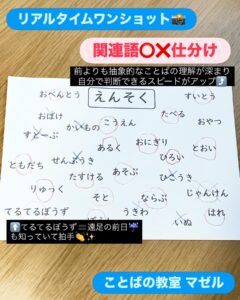 リアルタイムワンショット📸
関連語⭕❌仕分け
前よりも抽象的なことばの理解が深まり
自分で判断できるスピードがアップ⤴️
おべんとう
えんそく
すいとう
おばけ
こうえん
たべる
すとーぶ
かいもの
おやつ
あるく
おにぎり
とおい
ともだち
せんぷうき
ひろい
たすける
あそぶ
ひこうき
りゅっく
そと
ならぶ
じゃんけん
てるてるぼうず
うきわ
いぬ
はれ
⬆️てるてるぼうず＝遠足の前日☔
も知っていて拍手👏✨
ことばの教室 マゼル